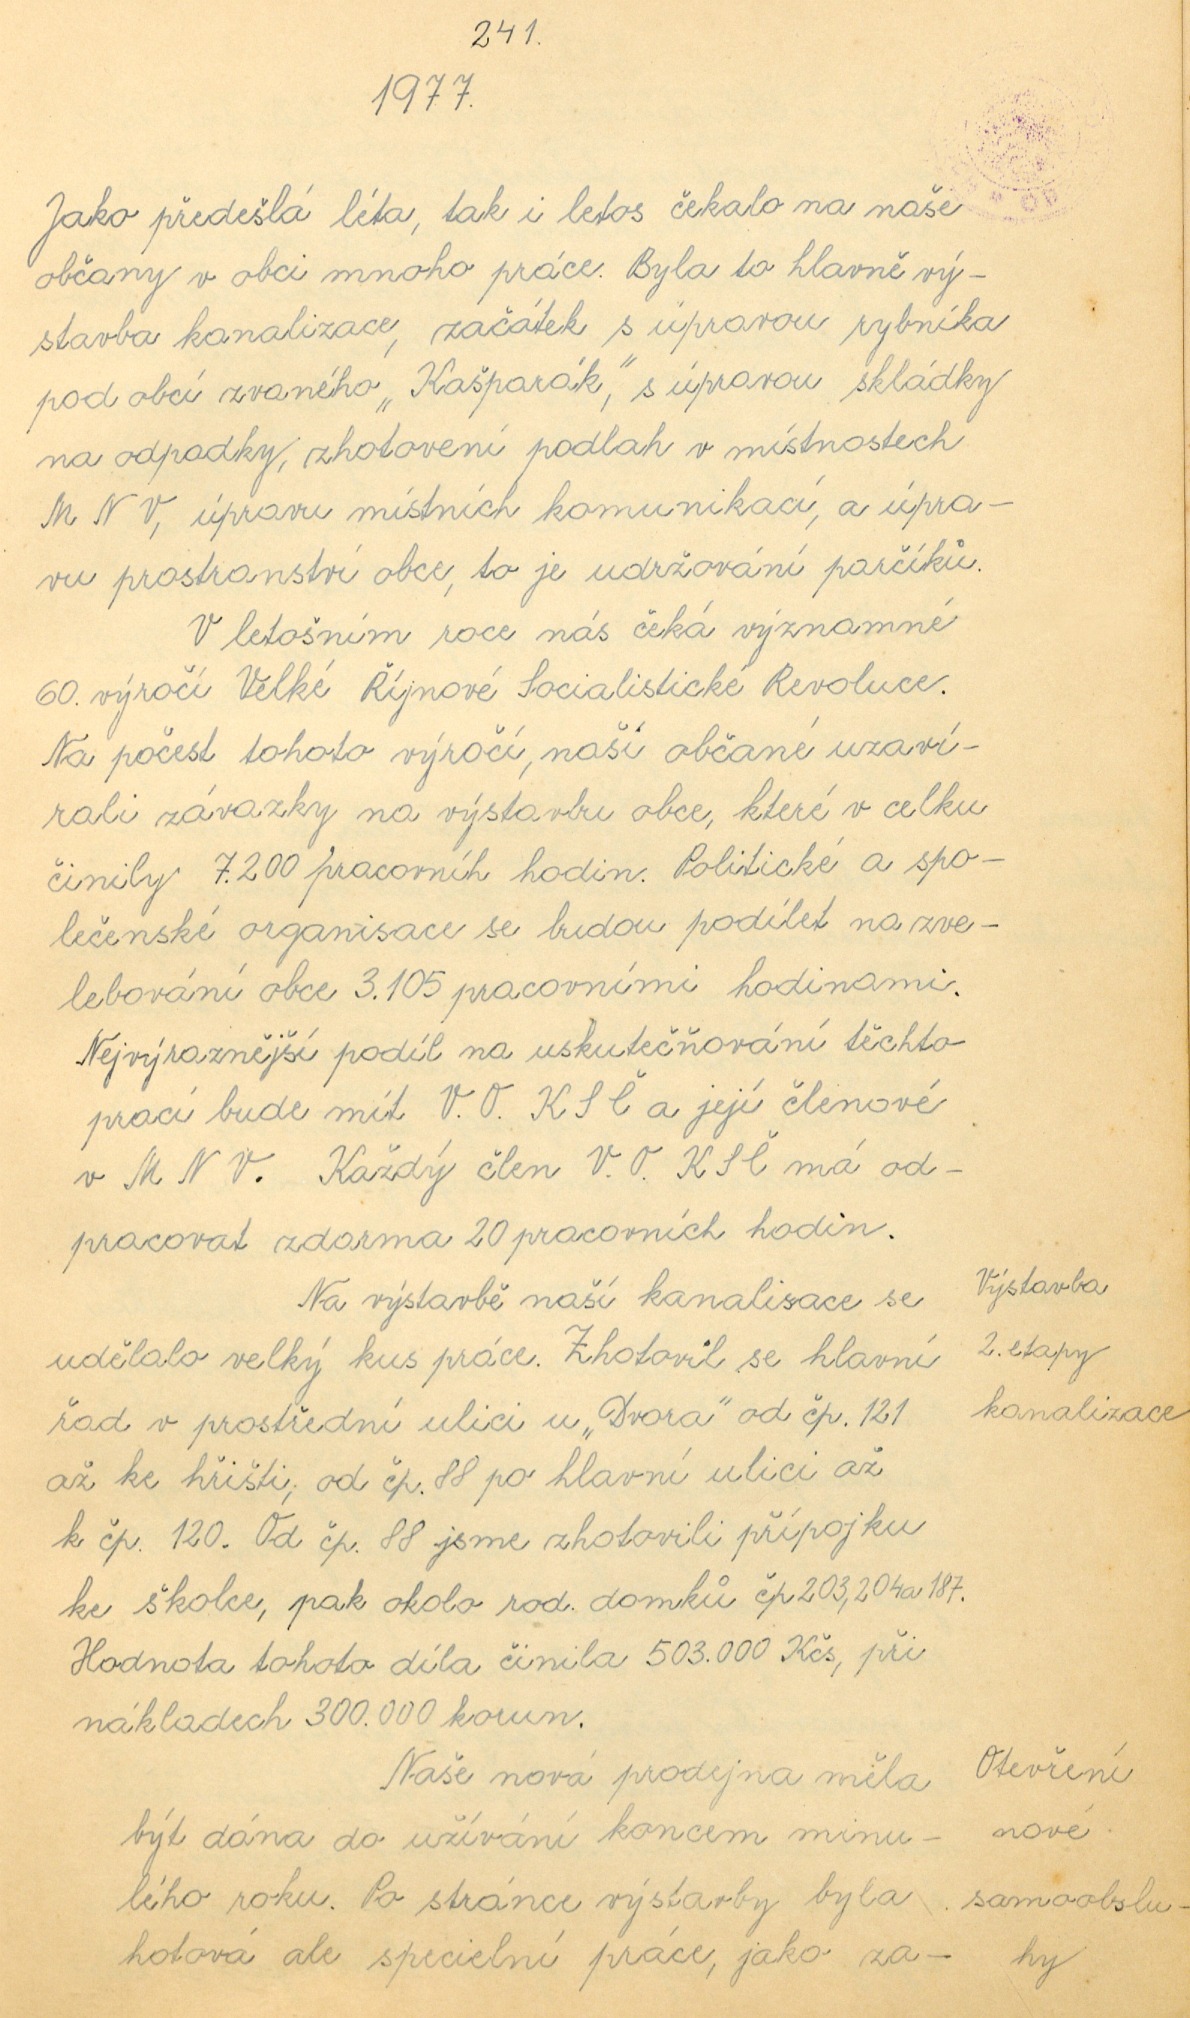 241.
1977.
Jako předešlá léta, tak i letos čekalo na naše
občany v obci mnoho práce. Byla to hlavně vý-
stavba kanalizace, začátek s úpravou rybníka
pod obcí zvaného „Kašparák," s úpravou skládky
na odpadky, zhotovení podlah v místnostech
M N V, úpravu místních komunikací, a úpra-
vu prostranství obce, to je udržování parčíků.
V letošním roce nás čeká významné
60. výročí Velké Říjnové Socialistické Revoluce.
Na počest tohoto výročí, naší občané uzaví-
rali závazky na výstavbu obce, které v celku
činily 7.200 pracovníh hodin. Politické a spo-
lečenské organisace se budou podílet na zve-
lebování obce 3.105 pracovními hodinami.
Nejvýraznější podíl na uskutečňování těchto
prací bude mít V. O. K S Č a její členové
v M N V. Každý člen V. O. K S Č má od-
pracovat zdarma 20 pracovních hodin.
Na výstavbě naší kanalisace se
udělalo velký kus práce. Zhotovil se hlavní
řad v prostřední ulici u „Dvora" od čp. 121
až ke hřišti, od čp. 88 po hlavní ulici až
k čp. 120. Od čp. 88 jsme zhotovili přípojku
ke školce, pak okolo rod. domků čp 203, 204 a 187.
Hodnota tohoto díla činila 503.000 Kčs, při
nákladech 300.000 korun.
Výstavba
2. etapy
kanalizace
Naše nová prodejna měla
být dána do užívání koncem minu-
lého roku. Po stránce výstavby byla
hotová ale specielní práce, jako za-
Otevření
nové
samoobslu-
hy